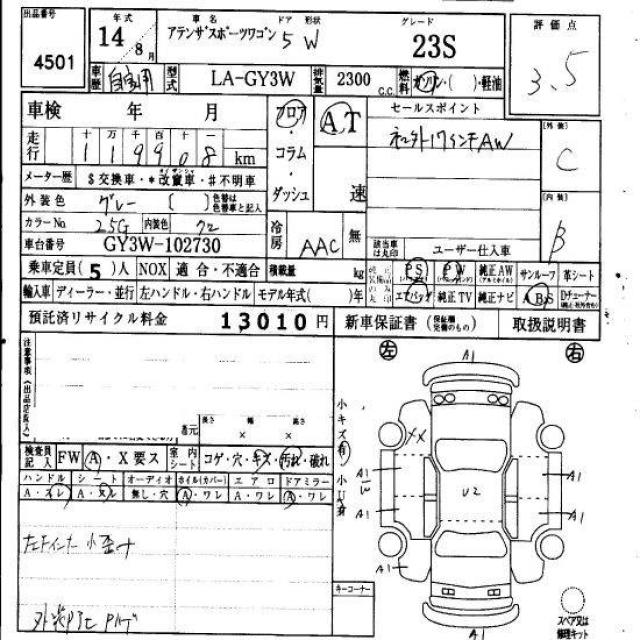 出品番号 4501
年式 14 8月 車名 アテンザスポーツワゴン ドア 形状 5 W グレード 23S 評価点 3.5
車歴 自家用 型式 LA-GY3W 排気量 2300 C.C. 燃料 ガソリン・( )・軽油
車検 年 月 フロア・コラム・ダッシュ AT 速 セールスポイント
走行 十万千百十一 119908 km 社外17インチAW [外装] C
メーター歴 $交換車・*改竄車・#不明車
外装色 グレー ( ) 色替は色替車と記入 [内装] B
カラーNo 25G 内装色 クロ
車台番号 GY3W-102730 冷房 AAC 無 該当車は丸印 ユーザー仕入車
乗車定員(5)人 NOX 適合・不適合 積載量 kg PS PW 純正AW サンルーフ 革シート
輸入車 ディーラー・並行 左ハンドル・右ハンドル モデル年式( )年 エアバッグ 純正TV 純正ナビ ABS Dチューナー
預託済リサイクル料金 13010円 新車保証書(保証欄完備のもの) 取扱説明書
注意事項(出品店記入)
左 右
A1
小キズ有 小U有
XX
A1 A1
U2
A1 A1
A1
A1
荷元 長さ 幅 高さ
× ×
検査員記入 FW A・X要ス 室内シート コゲ・穴・キズ・汚れ・破れ
ハンドル シート オーディオ ホイル(カバー) エアロ ドアミラー
A・スレ A・スレ 無し・穴 A・ワレ A・ワレ A・ワレ
左Fインナー小歪ナ
キーコーナー
スペア又は修理キット